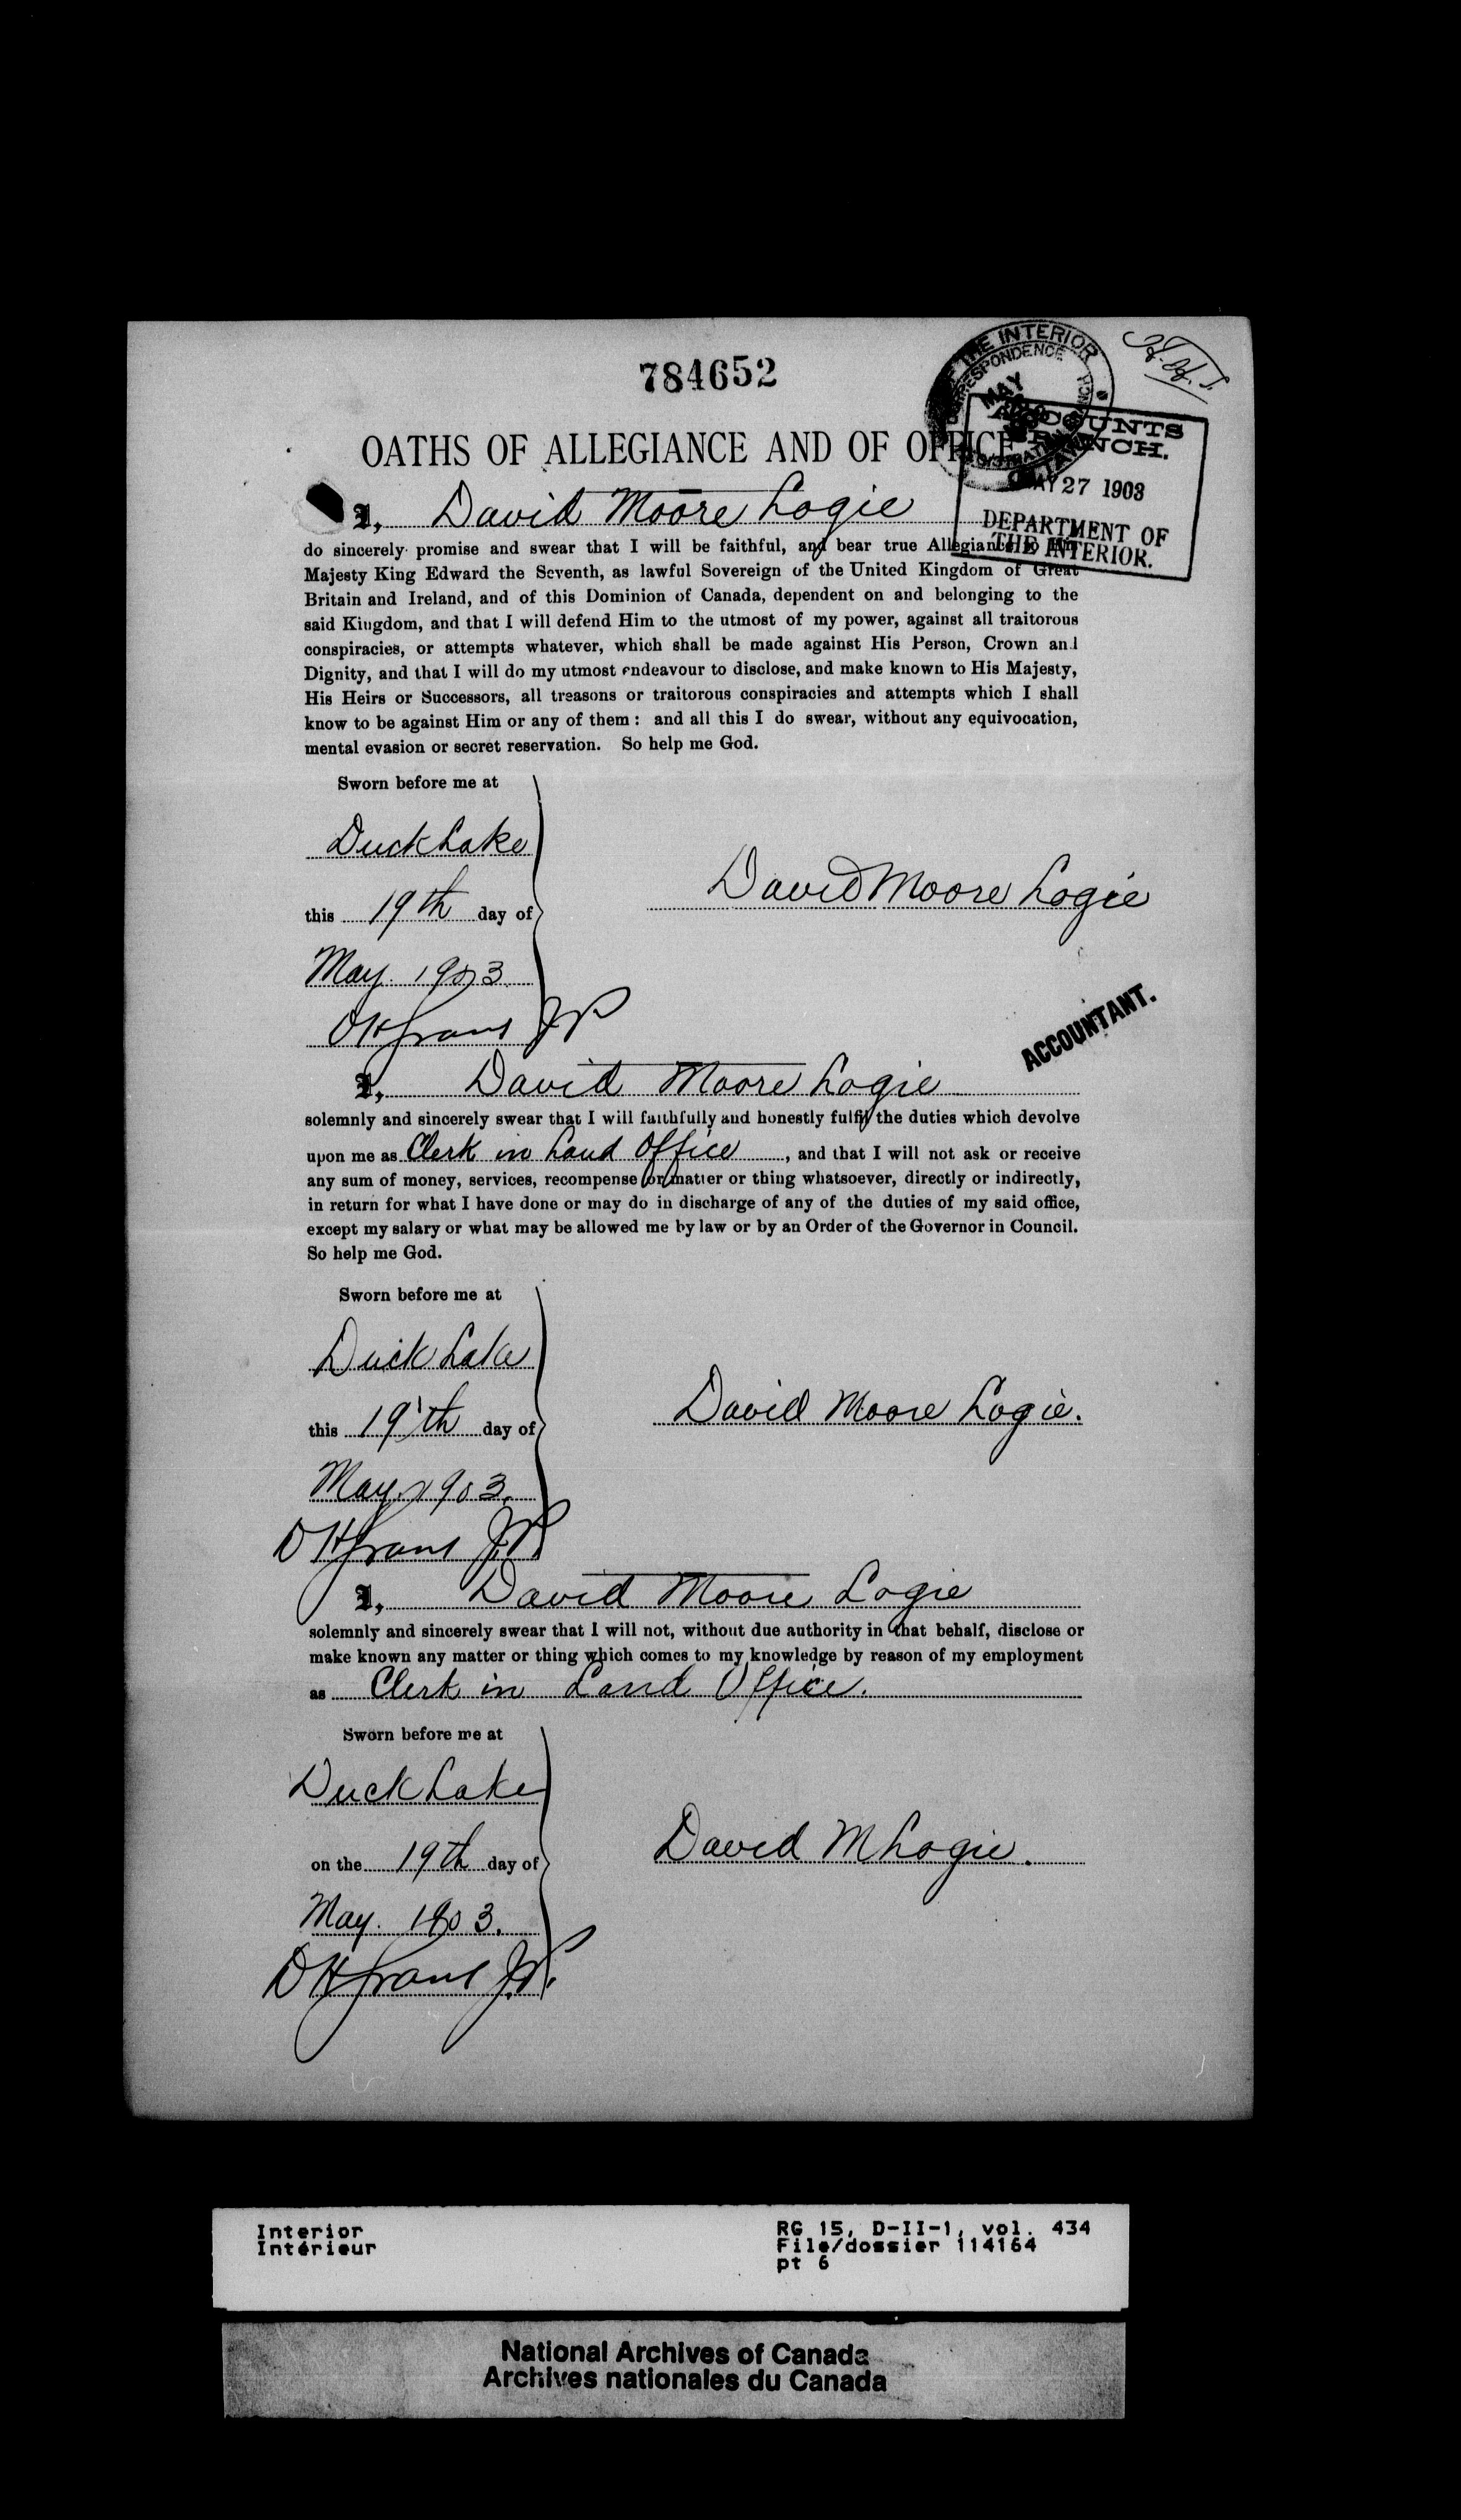 784652
THE INTERIOR
CORRESPONDENCE
MAY
ACCOUNTS
BRANCH.
MAY 27 1903
DEPARTMENT OF
THE INTERIOR.
OATHS OF ALLEGIANCE AND OF OFFICE
I, David Moore Logie
do sincerely promise and swear that I will be faithful, and bear true Allegiance to His
Majesty King Edward the Seventh, as lawful Sovereign of the United Kingdom of Great
Britain and Ireland, and of this Dominion of Canada, dependent on and belonging to the
said Kingdom, and that I will defend Him to the utmost of my power, against all traitorous
conspiracies, or attempts whatever, which shall be made against His Person, Crown and
Dignity, and that I will do my utmost endeavour to disclose, and make known to His Majesty,
His Heirs or Successors, all treasons or traitorous conspiracies and attempts which I shall
know to be against Him or any of them : and all this I do swear, without any equivocation,
mental evasion or secret reservation. So help me God.
Sworn before me at
Duck Lake
David Moore Logie
this 19th day of
May. 1903
D H Grant J P
ACCOUNTANT.
I, David Moore Logie
solemnly and sincerely swear that I will faithfully and honestly fulfil the duties which devolve
upon me as Clerk in Land Office, and that I will not ask or receive
any sum of money, services, recompense or matter or thing whatsoever, directly or indirectly,
in return for what I have done or may do in discharge of any of the duties of my said office,
except my salary or what may be allowed me by law or by an Order of the Governor in Council.
So help me God.
Sworn before me at
Duck Lake
David Moore Logie.
this 19th day of
May. 1903.
D H Grant J.P.
I, David Moore Logie
solemnly and sincerely swear that I will not, without due authority in that behalf, disclose or
make known any matter or thing which comes to my knowledge by reason of my employment
as Clerk in Land Office.
Sworn before me at
Duck Lake
David M Logie.
on the 19th day of
May. 1903.
D H Grant J.P.
Interior
Intérieur
RG 15, D-II-1, vol. 434
File/dossier 114164
pt 6
National Archives of Canada
Archives nationales du Canada